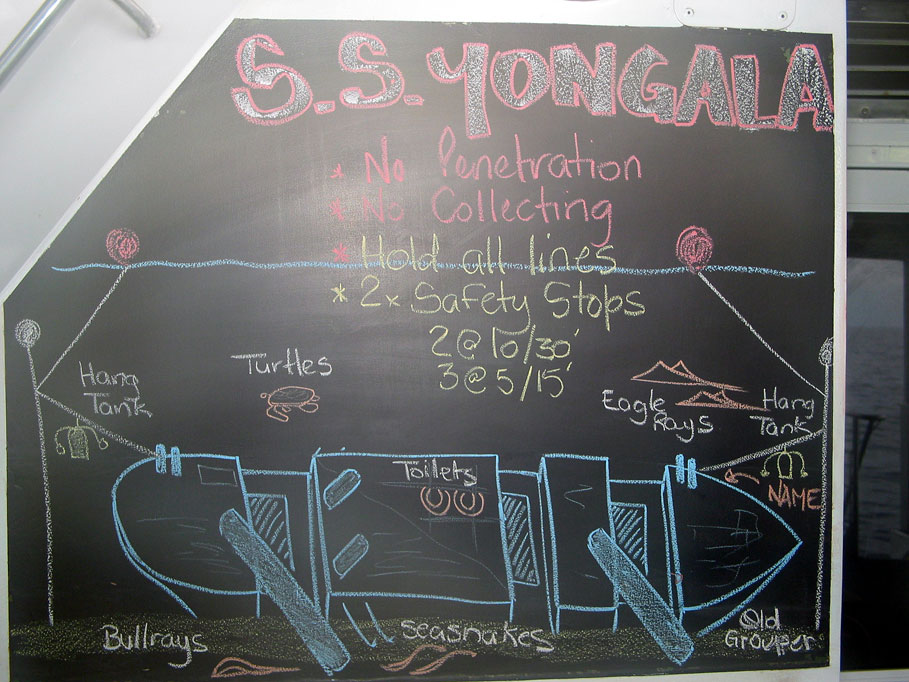 S.S. YONGALA
* No Penetration
* No Collecting
* Hold all lines
* 2x Safety Stops
2@10/30'
3@5/15'
Hang
Tank
Turtles
Eagle
Rays
Hang
Tank
Toilets
NAME
Bullrays
seasnakes
Old
Grouper